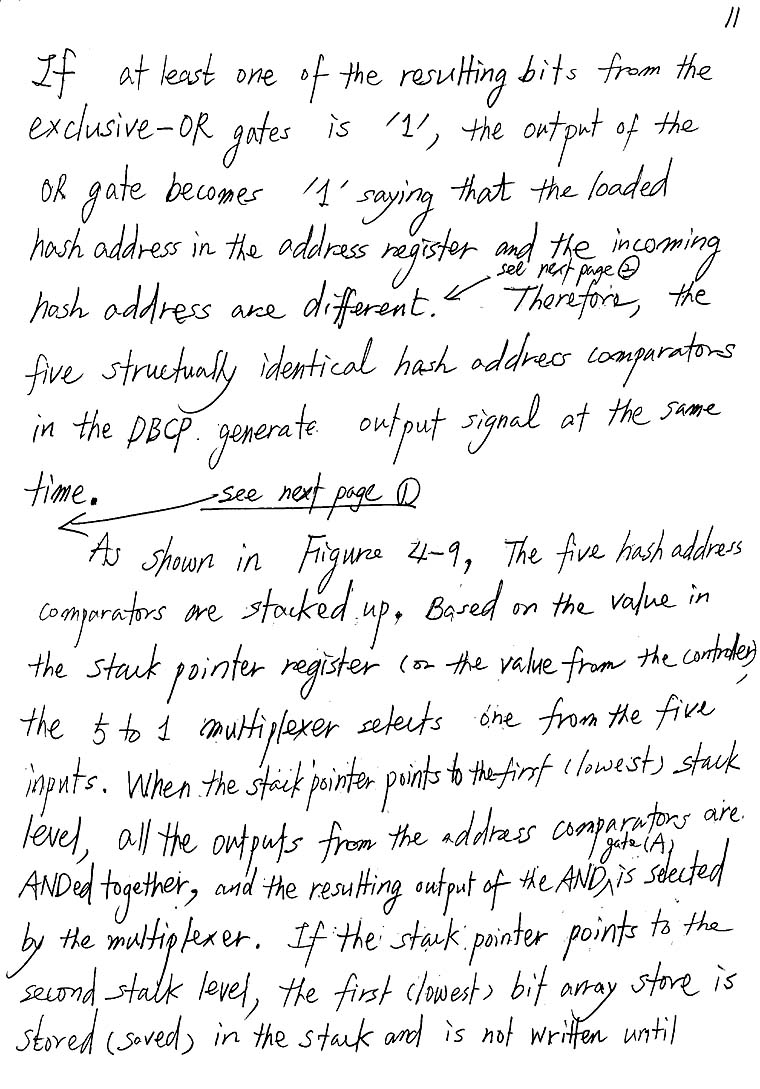 11
If at least one of the resulting bits from the
exclusive-OR gates is '1', the output of the
OR gate becomes '1' saying that the loaded
hash address in the address register and the incoming
see next page ②
hash address are different. Therefore, the
five structually identical hash address comparators
in the DBCP. generate output signal at the same
time.
see next page ①
As shown in Figure 4-9, The five hash address
comparators are stacked up. Based on the value in
the stack pointer register (or the value from the controller),
the 5 to 1 multiplexer selects one from the five
inputs. When the stack pointer points to the first (lowest) stack
level, all the outputs from the address comparators are
gate (A)
ANDed together, and the resulting output of the AND is selected
by the multiplexer. If the stack pointer points to the
second stalk level, the first (lowest) bit array store is
stored (saved) in the stack and is not written until